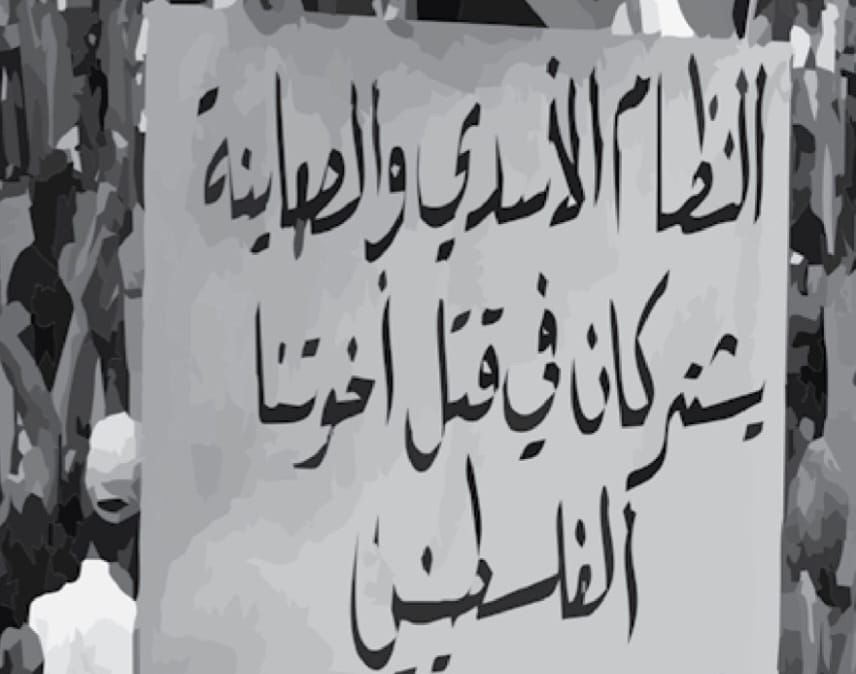 النظام الأسدي والصهاينة
يشتركان في قتل أخوتنا
الفلسطينيين